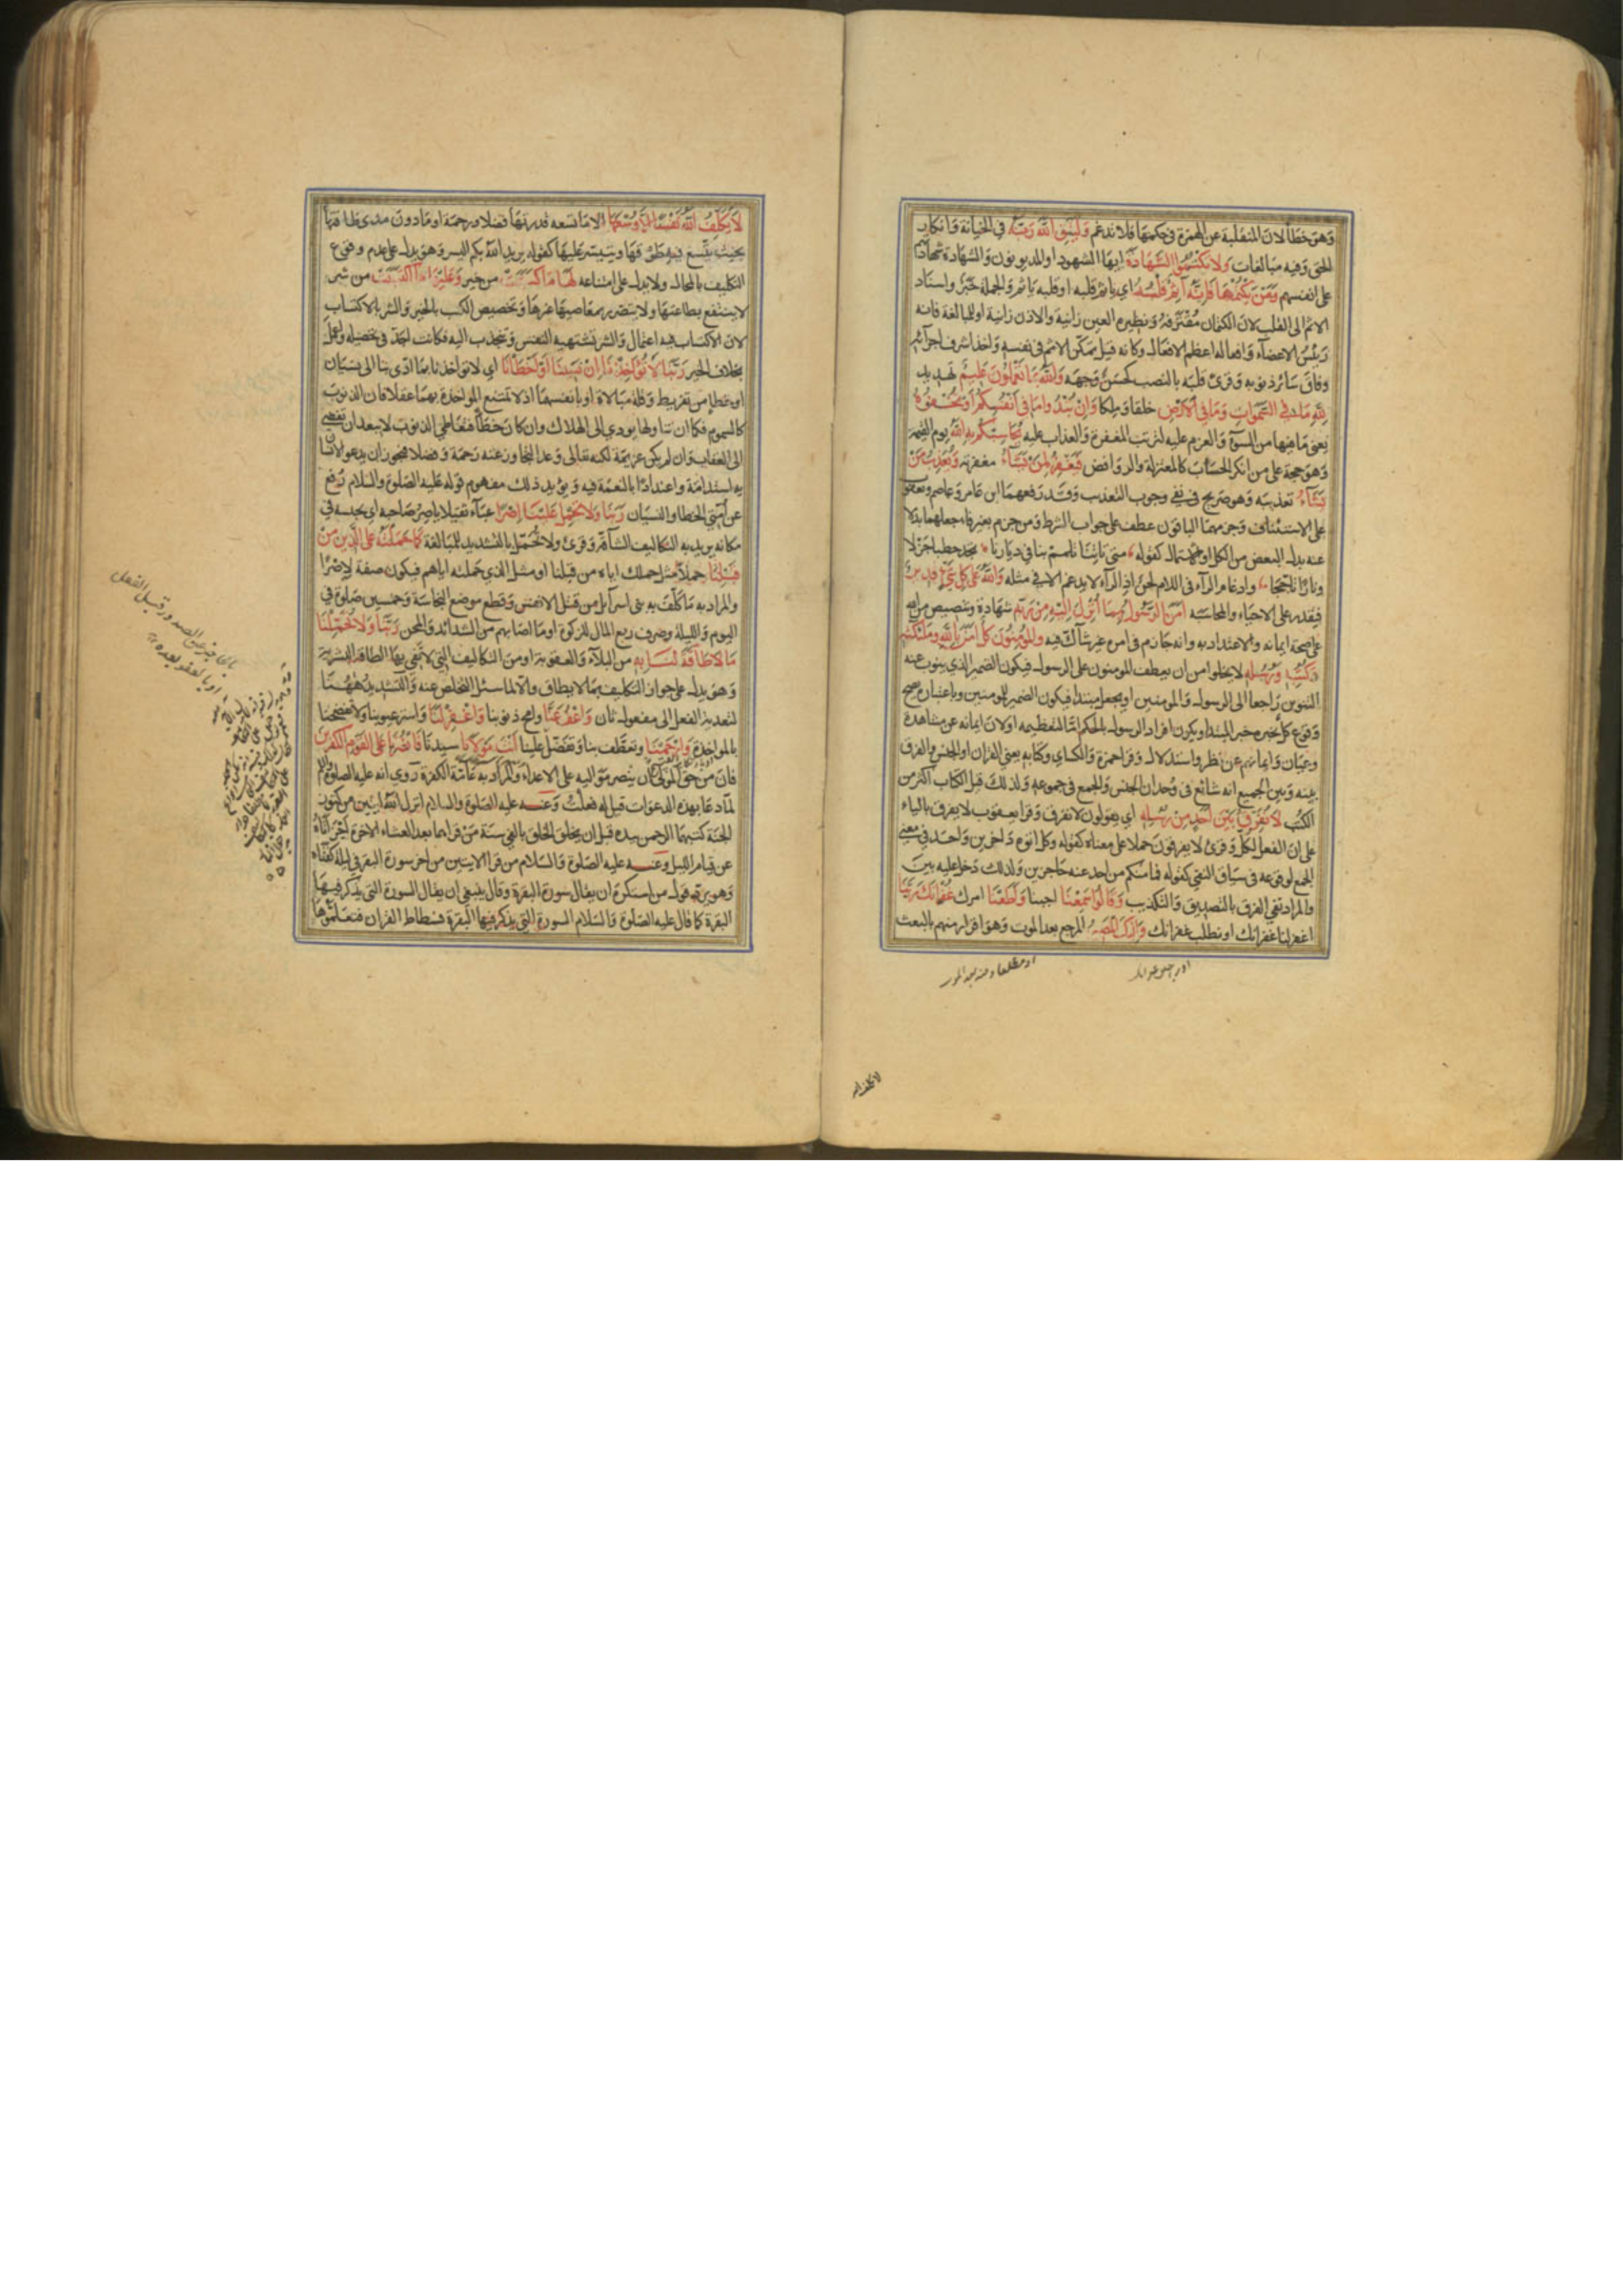 وهو خطأ لان المنقلبة عن الهمزة في حكمها فلا ندغم وليتق الله ربه في الخيانة وانكار
الحق وفيه مبالغات ولا تكتموا الشهادة ايها الشهود او المديونون والشهادة شهادتهم
على انفسهم ومن يكتمها فانه آثم قلبه اي يأثم قلبه او قلبه يأثم والجملة خبر واسناد
الاثم الى القلب لان الكتمان مقترفه ونظيره العين زانية والاذن زانية او للمبالغة فانه
رئيس الاعضاء وافعاله اعظم الافعال وكانه قيل تمكن الاثم في نفسه واخذ اشرف اجزائه
وفاق سائر ذنوبه وقرئ قلبه بالنصب كحسن وجهه والله بما تعملون عليم تهديد
لله ما في السموات وما في الارض خلقا وملكا وان تبدوا ما في انفسكم او تخفوه
يعني ما فيها من السوء والعزم عليه لترتب المغفرة والعذاب عليه يحاسبكم به الله يوم القيمة
وهو حجة على من انكر الحساب كالمعتزلة والروافض فيغفر لمن يشاء مغفرته ويعذب من
يشاء تعذيبه وهو صريح في نفي وجوب التعذيب وقد رفعهما ابن عامر وعاصم ويعقوب
على الاستئناف وجزمهما الباقون عطف على جواب الشرط ومن جزم بغير فاء جعلهما بدلا
عنه بدل البعض من الكل او الاشتمال كقوله متى تأتنا تلمم بنا في ديارنا تجد حطبا جزلا
ونارا تأججا وادغام الراء في اللام لحن اذ الراء لا يدغم الا في مثله والله على كل شيء قدير
فيقدر على الاحياء والمحاسبة آمن الرسول بما انزل اليه من ربه شهادة وتنصيص من الله
على صحة ايمانه والاعتداد به وانه جازم في امره غير شاك فيه والمؤمنون كل آمن بالله وملئكته
وكتبه ورسله لا يخلوا من ان يعطف المومنون على الرسول فيكون الضمير الذي ينوب عنه
التنوين راجعا الى الرسول والمومنين او يجعل مبتدا فيكون الضمير للمومنين وباعتباره يصح
وقوع كل بخبره خبر المبتدا ويكون افراد الرسول بالحكم اما لتعظيمه او لان ايمانه عن مشاهدة
وعيان وايمانهم عن نظر واستدلال وقرا حمزة والكساي وكتابه يعني القران او الجنس والفرق
بينه وبين الجميع انه شائع في وحدان الجنس والجمع في جموعه ولذلك قيل الكتاب اكثر من
الكتب لا نفرق بين احد من رسله اي يقولون لا نفرق وقرا يعقوب لا يفرق بالياء
على ان الفعل لكل وقرئ لا يفرقون حملا على معناه كقوله وكل اتوه داخرين واحد في معنى
الجمع لوقوعه في سياق النفي كقوله فما منكم من احد عنه حاجزين ولذلك دخل عليه بين
والمراد نفي الفرق بالتصديق والتكذيب وقالوا سمعنا اجبنا واطعنا امرك غفرانك ربنا
اغفر لنا غفرانك او نطلب غفرانك واليك المصير المرجع بعد الموت وهو اقرار منهم بالبعث
لا يكلف الله
لا يكلف الله نفسا الا وسعها الا ما تسعه قدرتها فضلا ورحمة او ما دون مدى طاقتها
بحيث يتسع فيه طوقها ويتيسر عليها كقوله يريد الله بكم اليسر وهو يدل على عدم وقوع
التكليف بالمحال ولا يدل على امتناعه لها ما كسبت من خير وعليها ما اكتسبت من شر
لا ينتفع بطاعتها ولا يتضرر بمعاصيها غيرها وتخصيص الكسب بالخير والشر بالاكتساب
لان الاكتساب فيه اعتمال والشر تشتهيه النفس وتنجذب اليه فكانت اجد في تحصيله واعمل
بخلاف الخير ربنا لا تؤاخذنا ان نسينا او اخطأنا اي لا تواخذنا بما ادى بنا الى نسيان
او خطإ من تفريط وقلة مبالاة او بانفسهما اذ لا تمتنع المواخذة بهما عقلا فان الذنوب
كالسموم فكما ان تناولها يودي الى الهلاك وان كان خطأ فتعاطي الذنوب لا يبعد ان يفضي
الى العقاب وان لم يكن عزيمة لكنه تعالى وعد التجاوز عنه رحمة وفضلا فيجوز ان يدعو الانسان
به استدامة واعتدادا بالنعمة فيه ويؤيد ذلك مفهوم قوله عليه الصلوة والسلام رفع
عن امتي الخطا والنسيان ربنا ولا تحمل علينا اصرا عبأ ثقيلا ياصر صاحبه اي يحبسه في
مكانه يريد به التكاليف الشاقة وقرئ ولا تحمل بالتشديد للمبالغة كما حملته على الذين من
قبلنا حملا مثل حملك اياه من قبلنا او مثل الذي حملته اياهم فيكون صفة لاصرا
والمراد به ما كلف به بني اسرآئل من قتل الانفس وقطع موضع النجاسة وخمسين صلوة في
اليوم والليلة وصرف ربع المال للزكوة او ما اصابهم من الشدائد والمحن ربنا ولا تحملنا
ما لا طاقة لنا به من البلآء والعقوبة او من التكاليف التي لا تفي بها الطاقة البشرية
وهو يدل على جواز التكليف بما لا يطاق والا لما سئل التخلص عنه والتشديد ههنا
لتعدية الفعل الى مفعول ثان واعف عنا وامح ذنوبنا واغفر لنا واستر عيوبنا ولا تفضحنا
بالمواخذة وارحمنا وتعطف بنا وتفضل علينا انت مولانا سيدنا فانصرنا على القوم الكفرين
فان من حق المولى ان ينصر مواليه على الاعداء والمراد به عامة الكفرة روي انه عليه الصلوة والسلم
لما دعا بهذه الدعوات قيل له فعلت وعنه عليه الصلوة والسلام انزل الله ايتين من كنوز
الجنة كتبهما الرحمن بيده قبل ان يخلق الخلق بالفي سنة من قراهما بعد العشاء الاخرة اجزأتاه
عن قيام الليل وعنه عليه الصلوة والسلام من قرا الايتين من اخر سورة البقرة في ليلة كفتاه
وهو يرد قول من استكره ان يقال سورة البقرة وقال ينبغي ان يقال السورة التي يذكر فيها
البقرة كما قال عليه الصلوة والسلام السورة التي يذكر فيها البقرة فسطاط القران فتعلموها